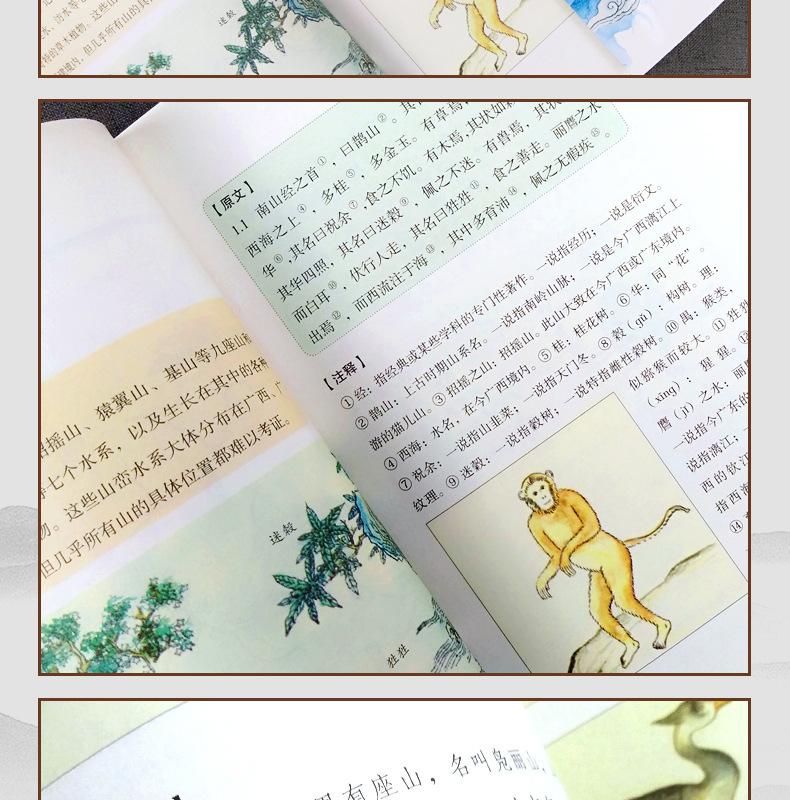 迷榖
【原文】
1.1 南山经之首①，曰鹊山②。其
西海之上④，多桂⑤，多金玉。有草焉，其状如
华⑥，其名曰祝余⑦，食之不饥。有木焉，其状
其华四照，其名曰迷榖⑨，佩之不迷。有兽焉，其状
而白耳⑩，伏行人走，其名曰狌狌⑪，食之善走。丽麂之水
出焉⑫，而西流注于海⑬，其中多育沛⑭，佩之无瘕疾⑮。
【注释】
①经：指经典或某些学科的专门性著作。一说指经历；一说是衍文。
②鹊山：上古时期山系名。一说指南岭山脉；一说是今广西漓江上
游的猫儿山。③招摇之山：招摇山。此山大致在今广西或广东境内。
④西海：水名，在今广西境内。⑤桂：桂花树。⑥华：同“花”。
⑦祝余：一说指山韭菜；一说指天门冬。⑧榖（gǔ）：构树。理：
纹理。⑨迷榖：一说指榖树；一说特指雌性榖树。⑩禺：猴类，
似猕猴而较大。⑪狌狌
（xīng）：猩猩。⑫
麂（jǐ）之水：丽麂
一说指今广东的
说指漓江；一
西的钦江
指西海
⑭
招摇山、猿翼山、基山等九座山和
等七个水系，以及生长在其中的各种
物。这些山峦水系大体分布在广西、广
但几乎所有山的具体位置都难以考证。
迷榖
狌狌
有座山，名叫凫丽山，